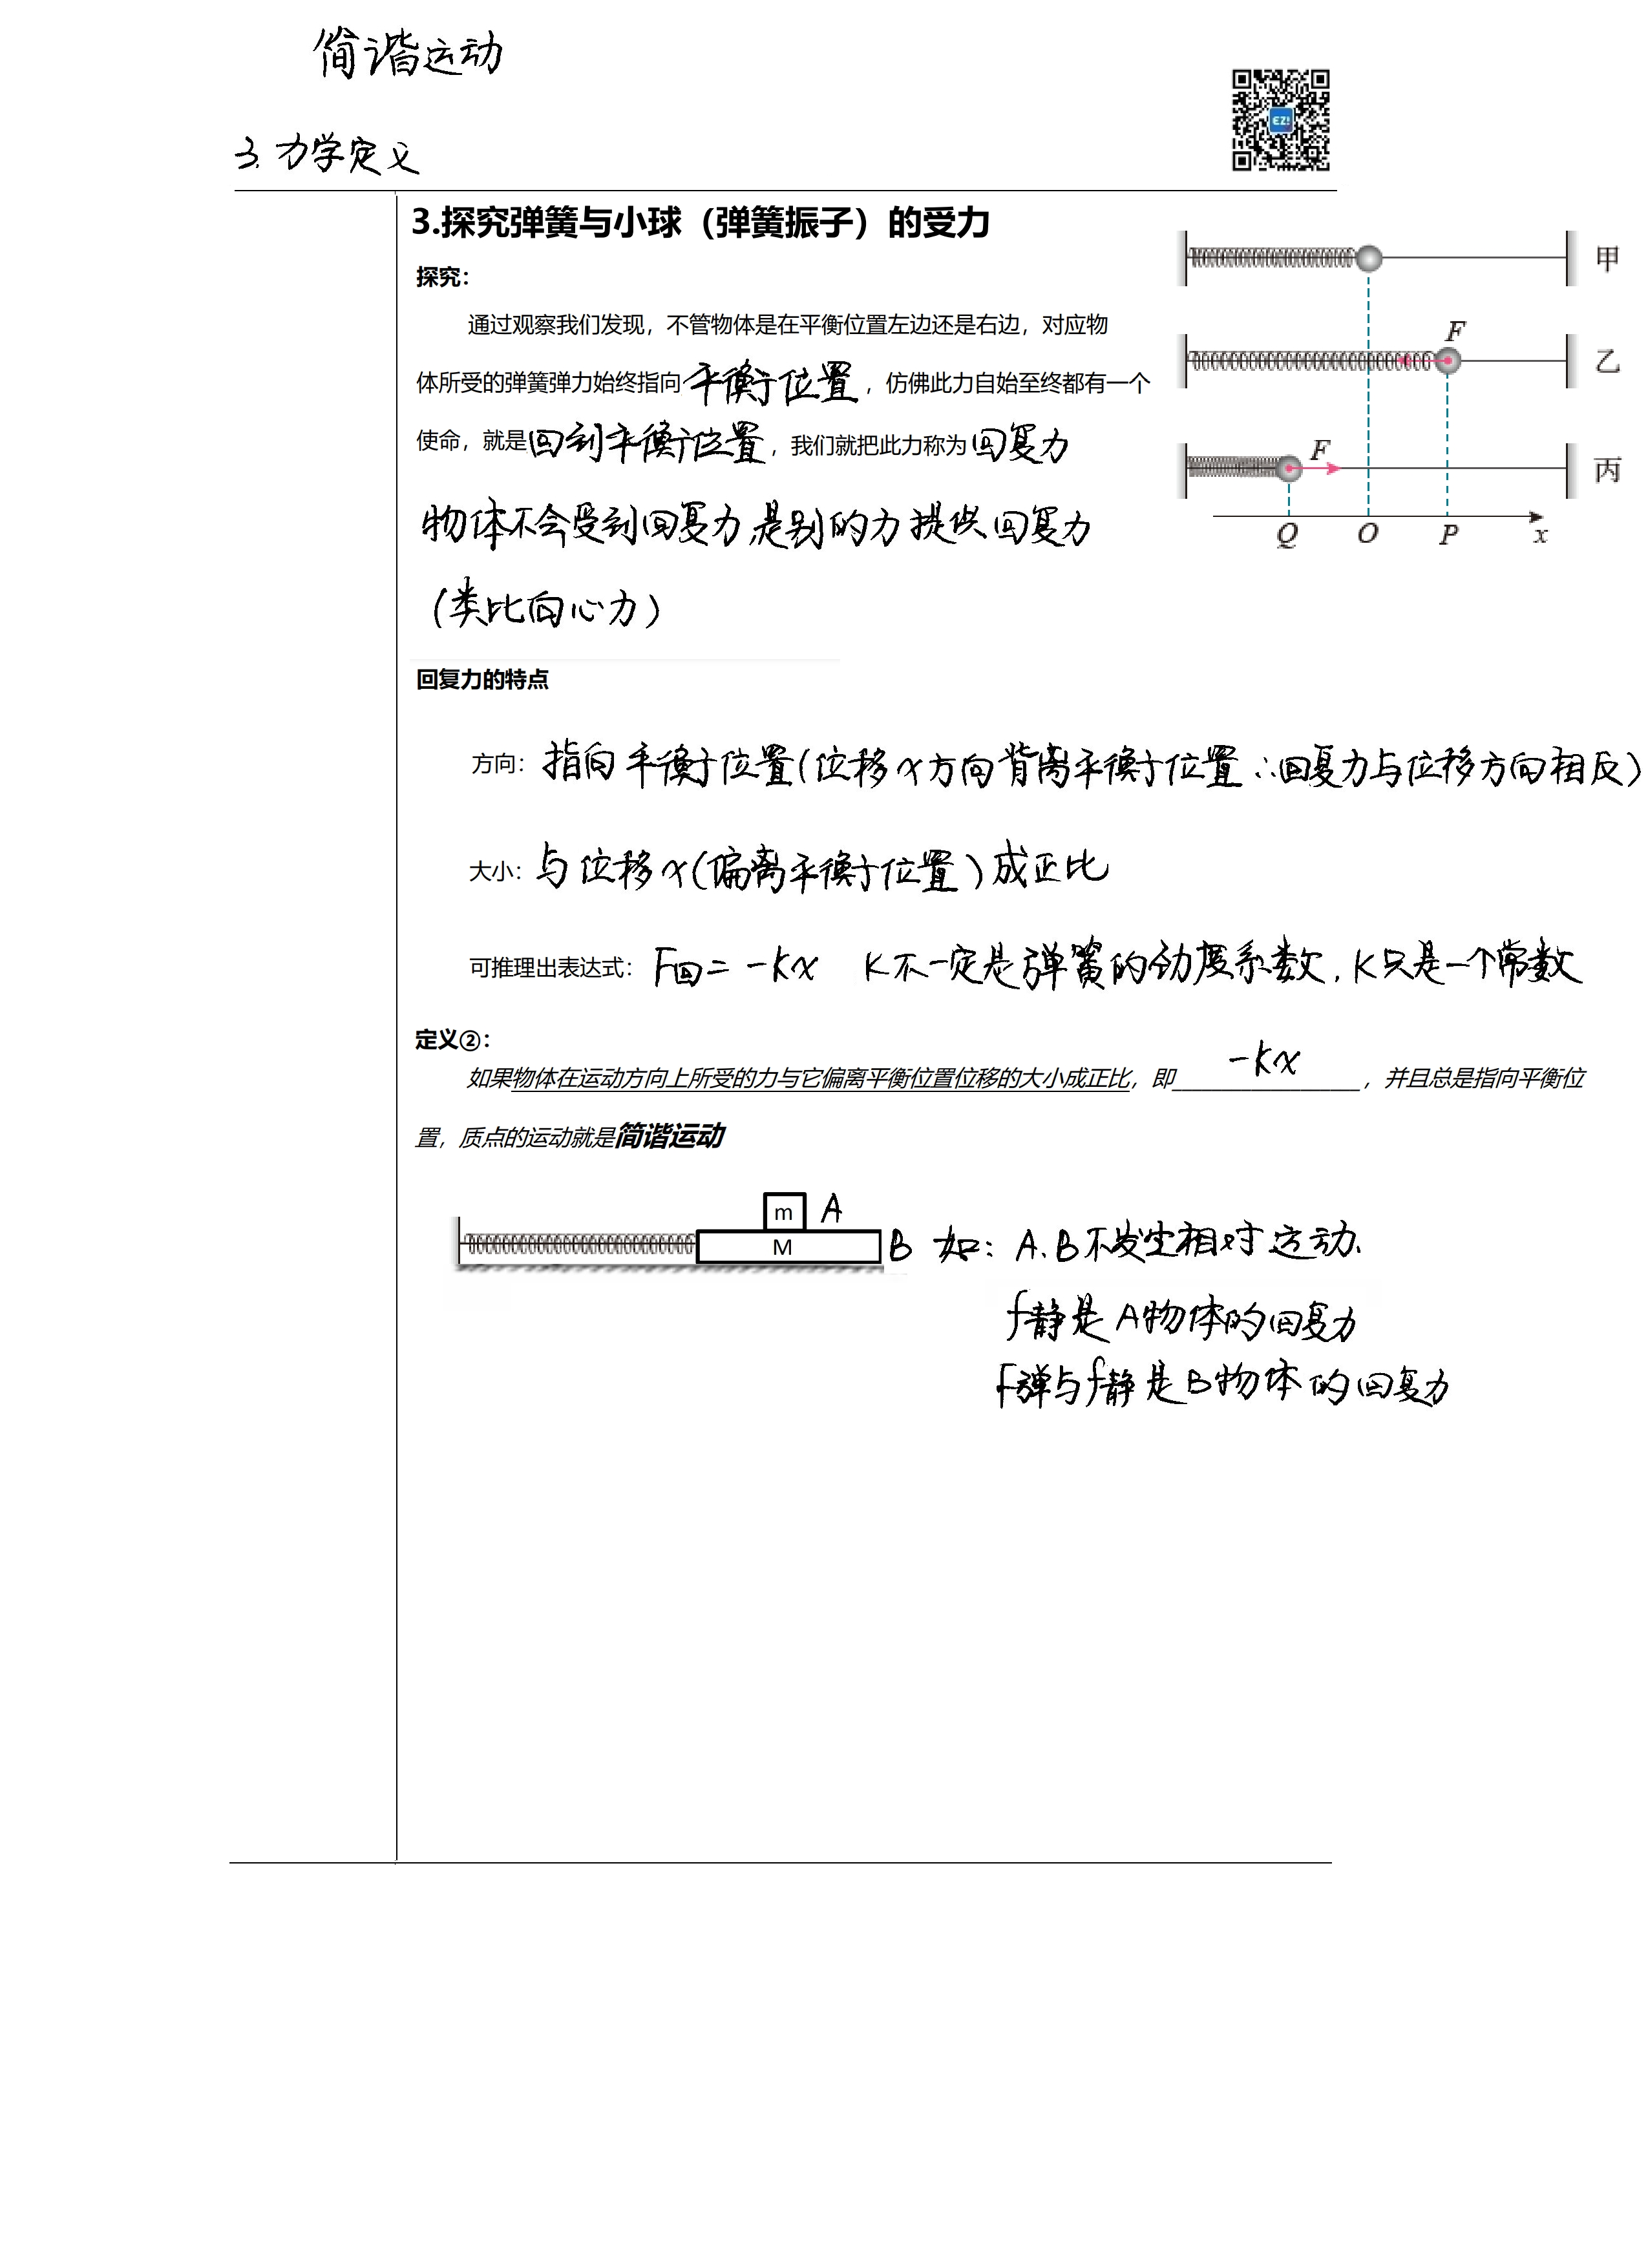 简谐运动
EZ!
3.力学定义
3.探究弹簧与小球（弹簧振子）的受力
探究：
甲
通过观察我们发现，不管物体是在平衡位置左边还是右边，对应物
F
乙
体所受的弹簧弹力始终指向平衡位置，仿佛此力自始至终都有一个
使命，就是回到平衡位置，我们就把此力称为回复力
F
丙
物体不会受到回复力,是别的力提供回复力
Q O P x
(类比向心力)
回复力的特点
方向：指向平衡位置(位移x方向背离平衡位置∴回复力与位移方向相反)
大小：与位移x(偏离平衡位置)成正比
可推理出表达式：F回=-kx K不一定是弹簧的劲度系数,K只是一个常数
定义②：
如果物体在运动方向上所受的力与它偏离平衡位置位移的大小成正比，即-kx，并且总是指向平衡位
置，质点的运动就是简谐运动
m A
M B 如：A.B不发生相对运动.
f静是A物体的回复力
F弹与f静是B物体的回复力